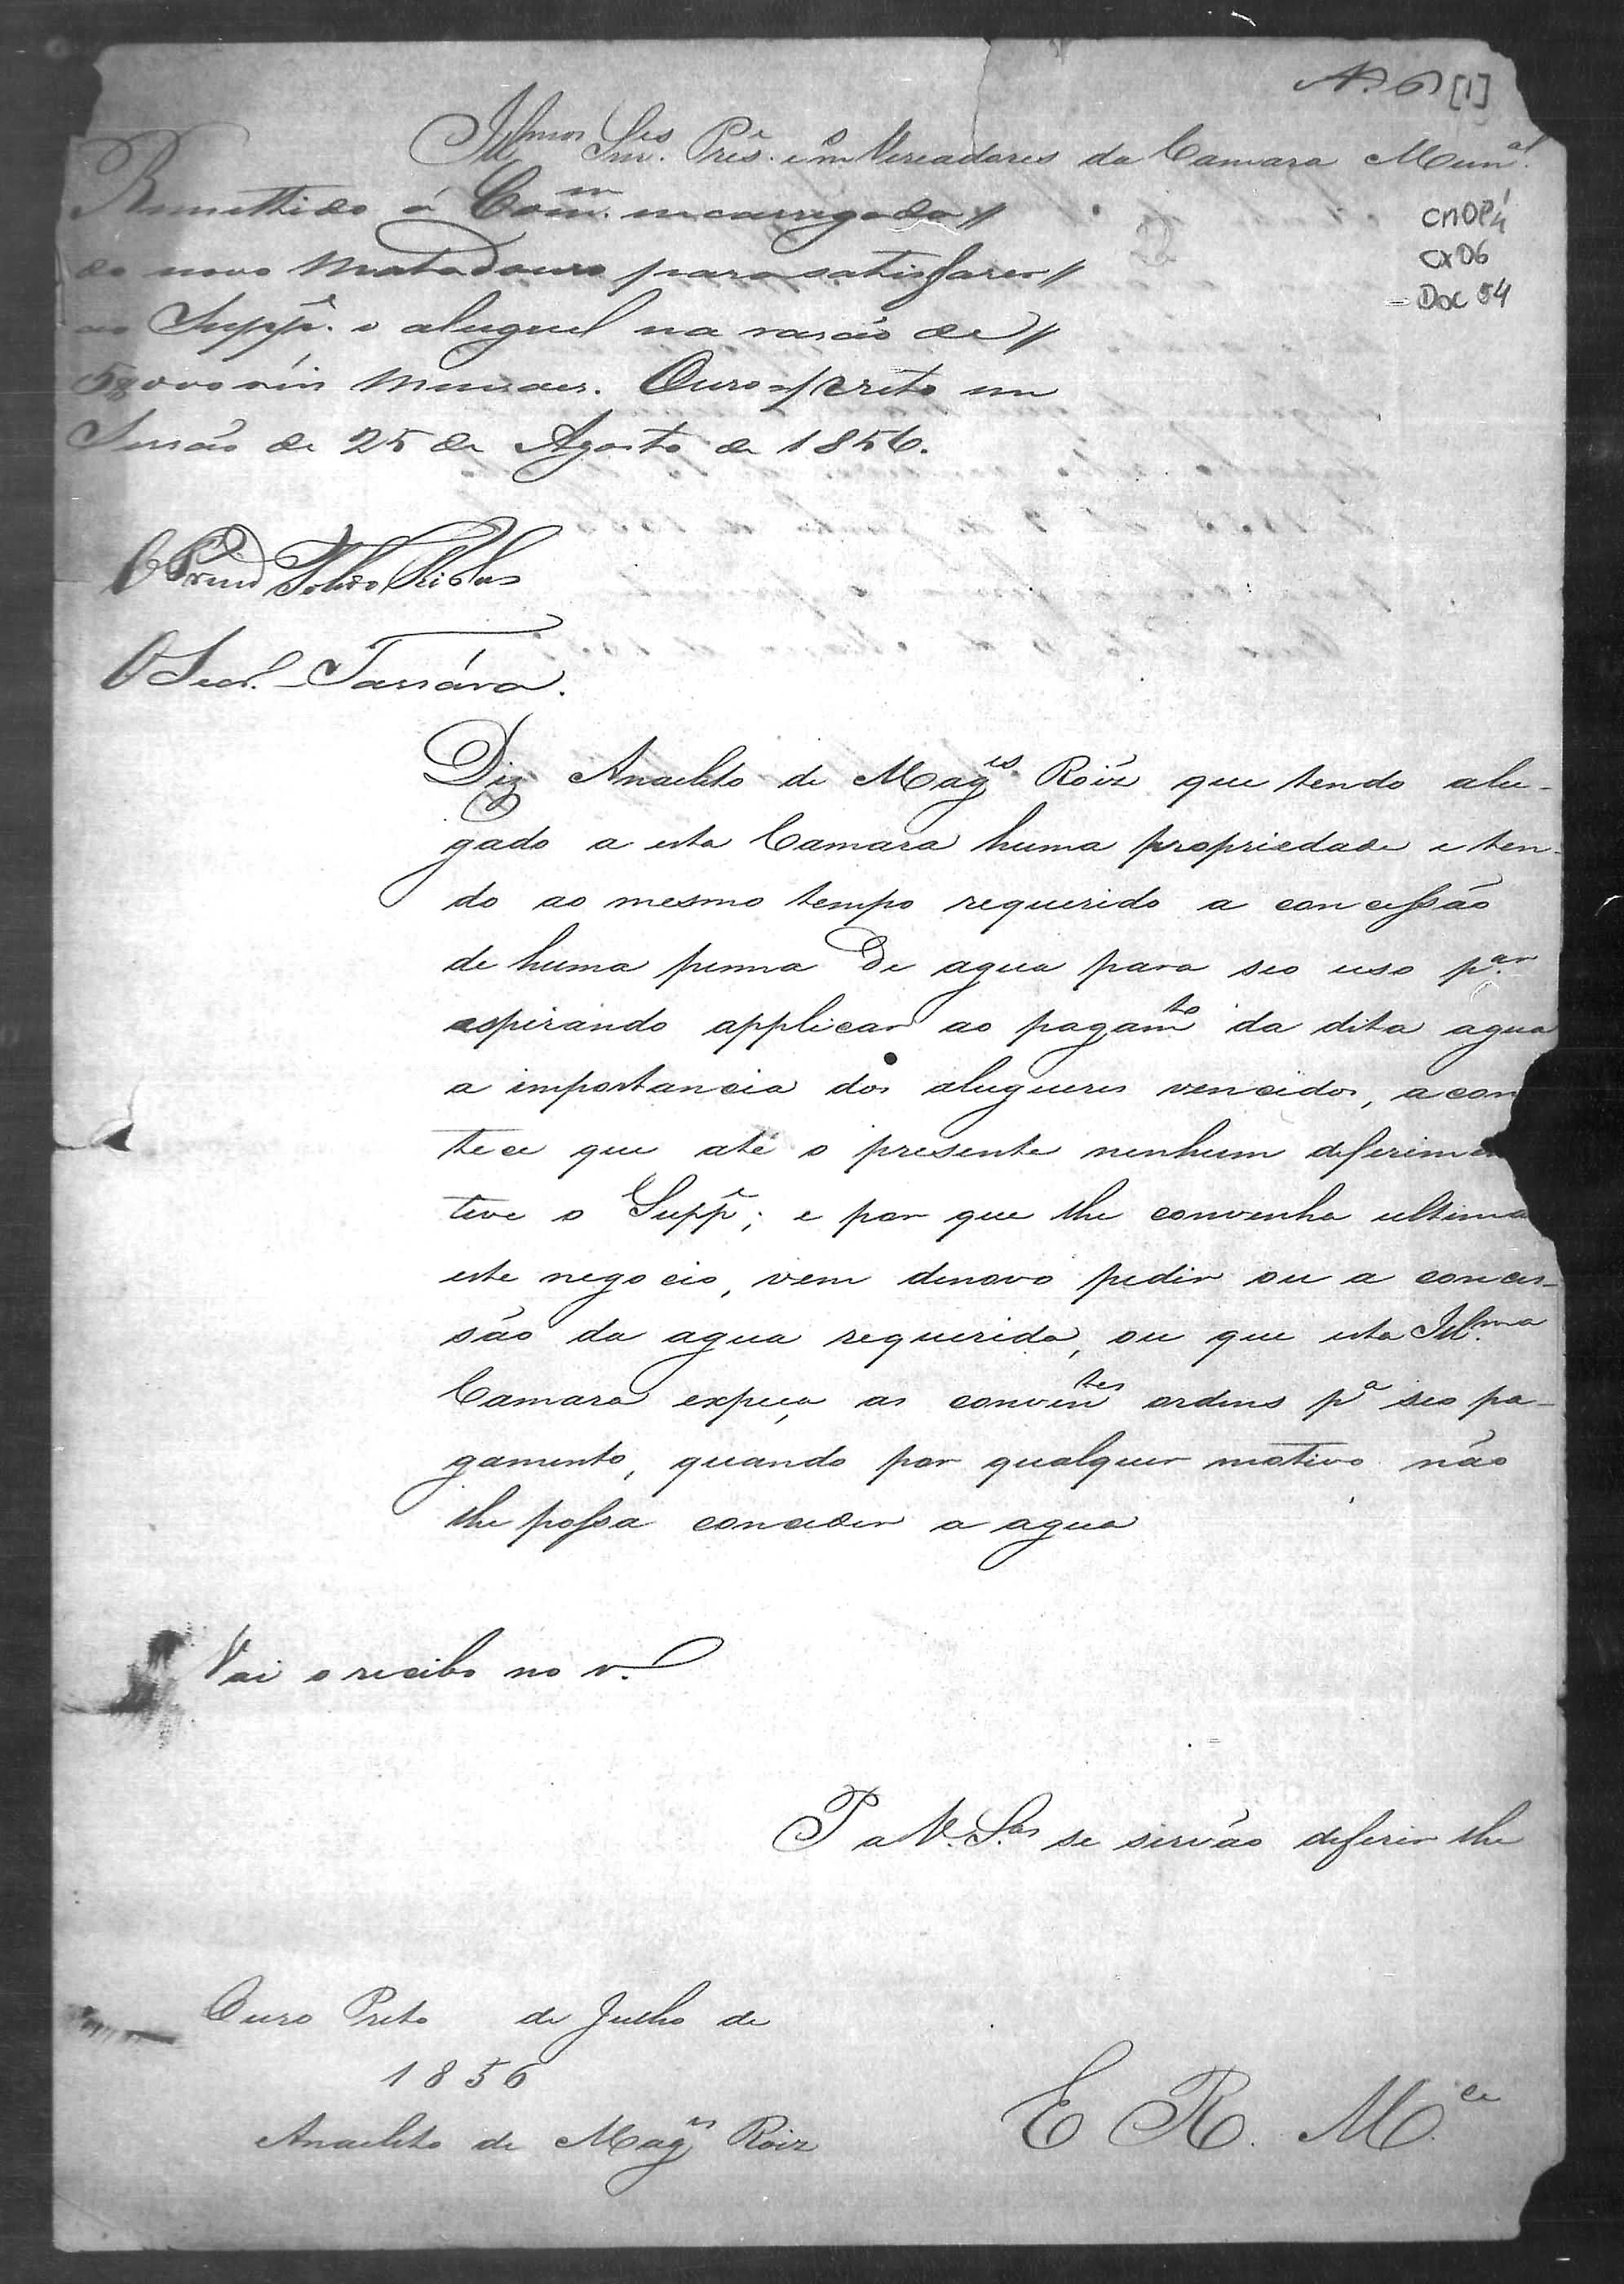 N. 6 [1]
Ill.mos Snr.es Pres.e e m Vereadores da Camara Mun.al
CMOP
CX 06
Doc 54
Remettido á Com.m encarregada //
do novo Matadouro para satisfazer //
ao Supp.e o aluguel na rasão de //
5$000 réis mensaes. Ouro-preto em
Sessão de 25 de Agosto de 1856.
O Presid
O Secr. Tassára.
Diz Anacleto de Mag.es Roiz que tendo alu-
gado a esta Camara huma propriedade e ten-
do ao mesmo tempo requerido a concessão
de huma penna de agua para seo uso p.ar
esperando applicar ao pagam.to da dita agua
a importancia dos alugueres vencidos, acon
tece que até o presente nenhum deferim
teve o Supp.e; e por que lhe convenha ultima
este negocio, vem denovo pedir ou a conces-
são da agua requerida, ou que esta Ill.ma
Camara expeça as conven.tes ordens p.a seo pa-
gamento, quando por qualquer motivo não
lhe possa conceder a agua
Vai o recibo no v.
P a V. S.as se sirvão deferir lhe
Ouro Preto de Julho de
1856
Anacleto de Mag.es Roiz
E R. M.ce